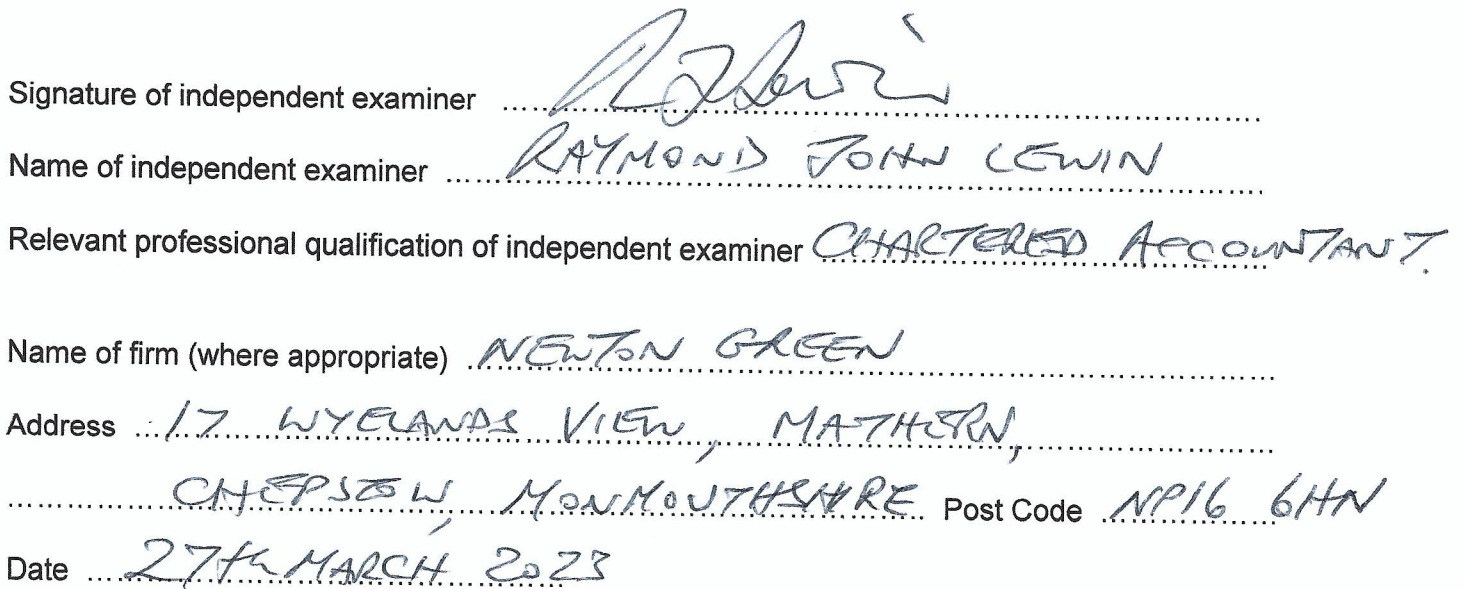 Signature of independent examiner RJLewin
Name of independent examiner RAYMOND JOHN LEWIN
Relevant professional qualification of independent examiner CHARTERED ACCOUNTANT.
Name of firm (where appropriate) NEWTON GREEN
Address 17 WYELANDS VIEW, MATHERN,
CHEPSTOW, MONMOUTHSHIRE Post Code NP16 6HN
Date 27th MARCH 2023